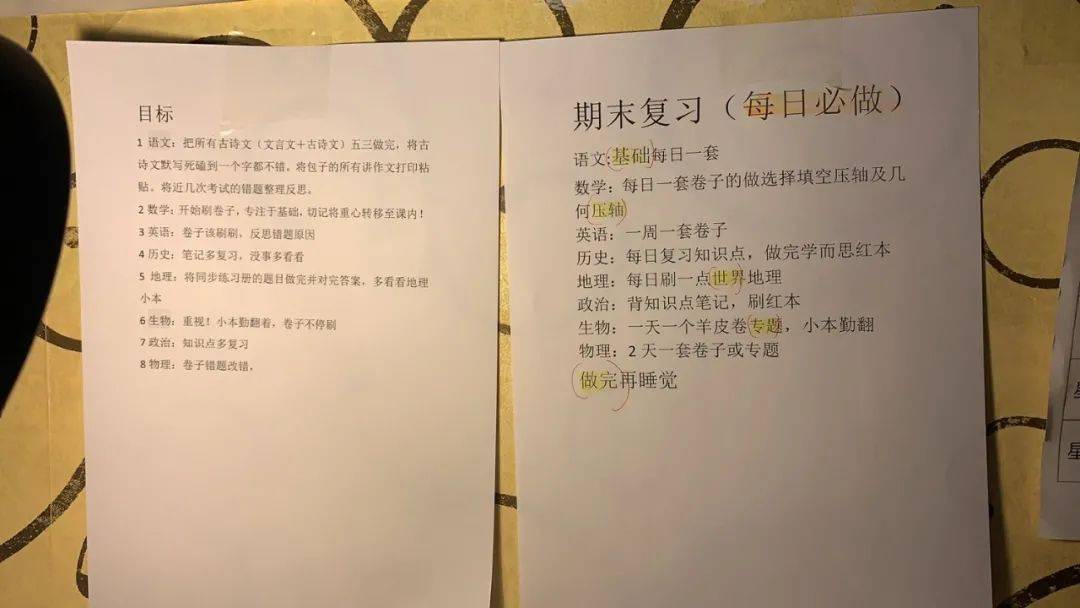 目标
1 语文：把所有古诗文（文言文+古诗文）五三做完，将古
诗文默写死磕到一个字都不错。将包子的所有讲作文打印粘
贴。将近几次考试的错题整理反思。
2 数学：开始刷卷子，专注于基础，切记将重心转移至课内！
3 英语：卷子该刷刷，反思错题原因
4 历史：笔记多复习，没事多看看
5 地理：将同步练习册的题目做完并对完答案，多看看地理
小本
6 生物：重视！小本勤翻着，卷子不停刷
7 政治：知识点多复习
8 物理：卷子错题改错，
期末复习（每日必做）
语文:基础每日一套
数学：每日一套卷子的做选择填空压轴及几
何压轴
英语：一周一套卷子
历史：每日复习知识点，做完学而思红本
地理：每日刷一点世界地理
政治：背知识点笔记，刷红本
生物：一天一个羊皮卷专题，小本勤翻
物理：2 天一套卷子或专题
做完再睡觉